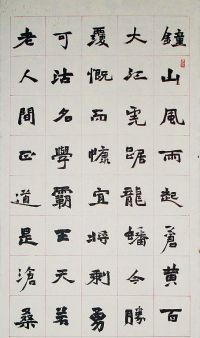 鐘山風雨起蒼黃百
大江虎踞龍蟠今勝
覆慨而慷宜將剩勇
可沽名學霸王天若
老人間正道是滄桑